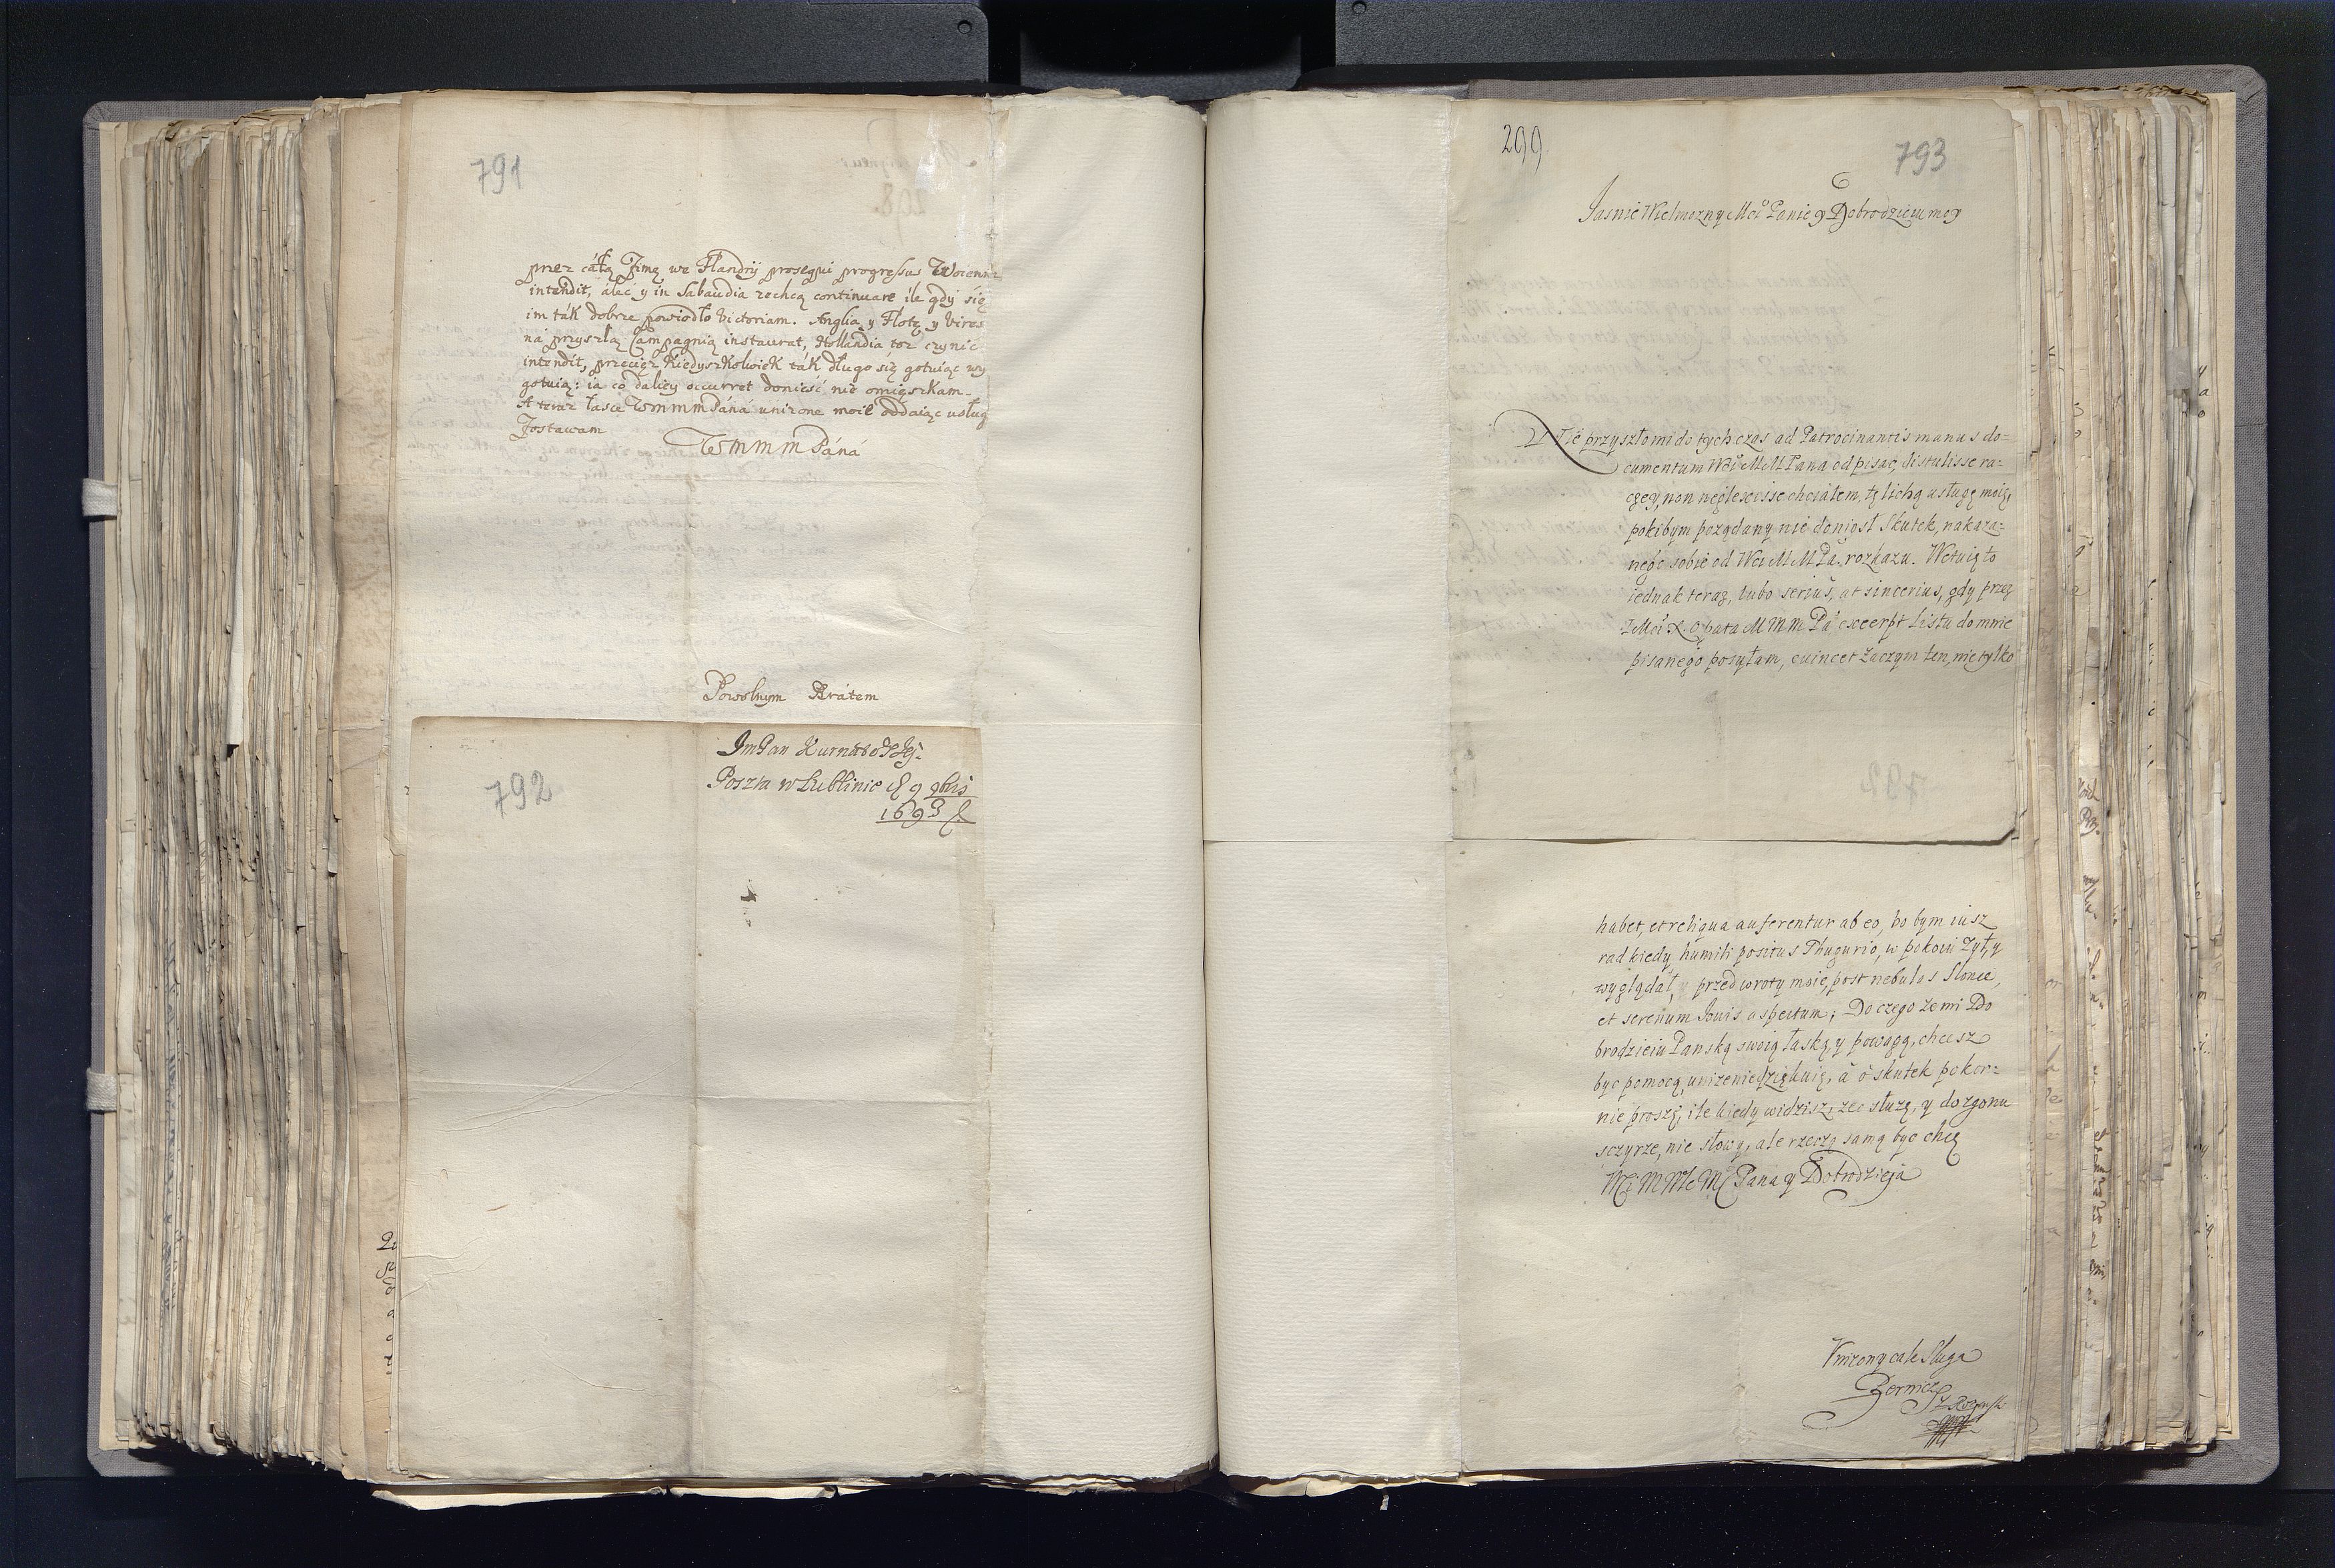 791
przez całą Zimę we Flandrij prosequi progressus Woienne
intendit, álec y in Sabaudia zechcą continuare ile gdy się
im ták dobrze powiodło Victoriam. Anglia y Flotę y Vires
ná przyszłą Campagnią instaurat, Hollandia toz czynic
intendit, przecięz kiedyszkolwiek ták długo się gotuiąc wy
gotuią: ia co daliey occurret donieść nie omięszkam.
A teraz łasce Wmmm Páná unizone moie oddaiąc usług
Zostawam
Wmmm Páná
Powolnym Brátem
792
ImPan
Poszta w Lublinie 9 9bris
1693
299
793
Jasnie Wielmozny Mci Panie y Dobrodzieiu moy
Nie przyszło mi do tych czas ad Patrocinantis manus do=
cumentum Wci M M Pana odpisac, distulisse ra=
czey, non neglexisse chciałem, tę lichą usługę moię,
pokibym poządany nie doniosł Skutek, nakaza=
nego sobie od Wci M M Pa. rozkazu. Wetuię to
iednak teraz, lubo serius, at sincerius, gdy przez
IMci X. Opata M m m Pa excerpt Listu do mnie
pisanego posyłam, euincet zaczym ten, nie tylko
792
habet, et reliqua auferentur ab eo, bo bym iusz
rad kiedy humili positus Thugurio, w pokoiu Zył, y
wyglądał, przed wroty moie, post nebulas Słonce,
et serenum Iouis aspectum; Do czego ze mi Do
brodzieiu Panską swoią łaską, y powagą, chcesz
byc pomocą, unizenie dziękuię, a o skutek pokor=
nie proszę, ile kiedy widzisz, zec słuzę, y dozgonu
szczyrze, nie słowy, ale rzeczą samą byc chcę
Pana y Dobrodzieja
Vnizony cale Sługa